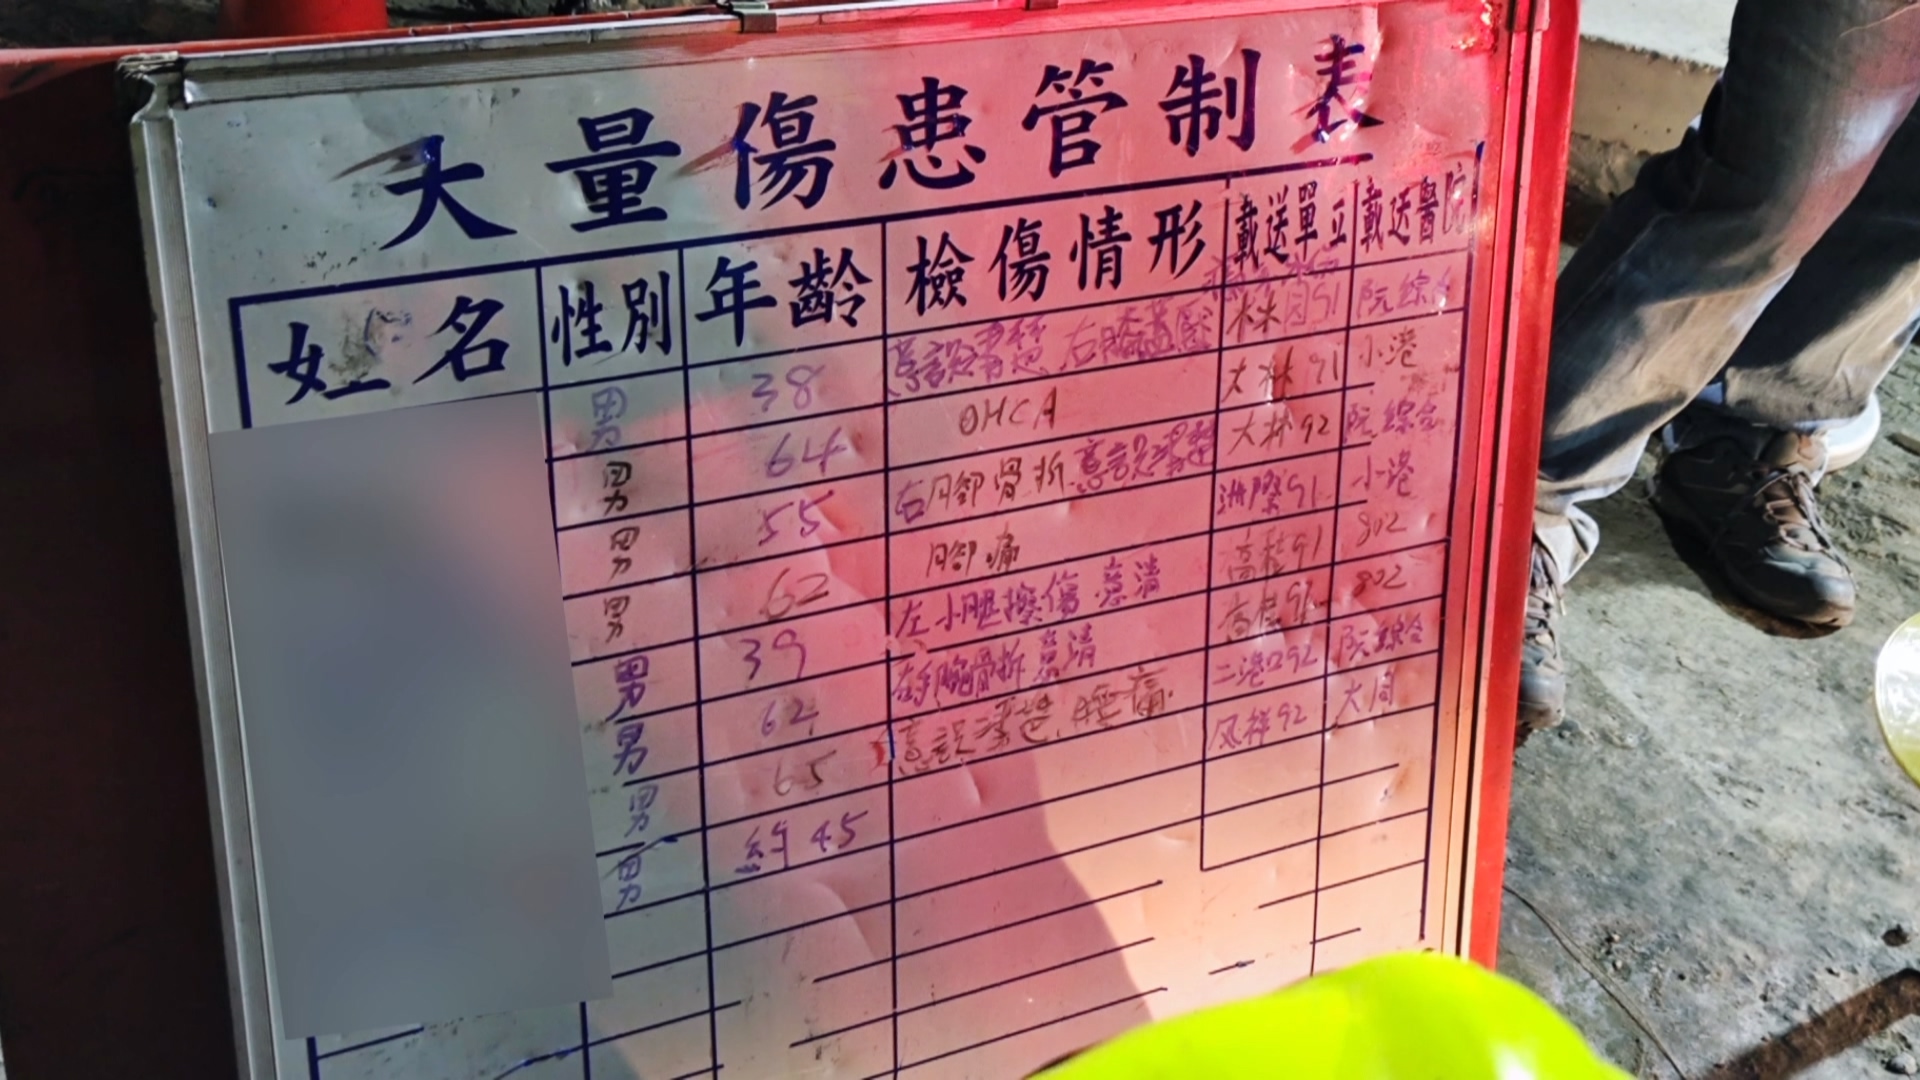 大量傷患管制表
姓名 性別 年齡 檢傷情形 載送單立 載送醫院
男 38 意識清楚 右膝蓋 林园91 阮綜合
男 64 OHCA 大林91 小港
男 55 右腳骨折 意識清楚 大林92 阮綜合
男 62 腳痛 91 小港
男 39 左小腿擦傷 意清 高桂91 802
男 62 手腕骨折 意清 高桂92 802
男 65 意識清楚 腰痛 二港口92 阮綜合
男 約45 风祥92 大同